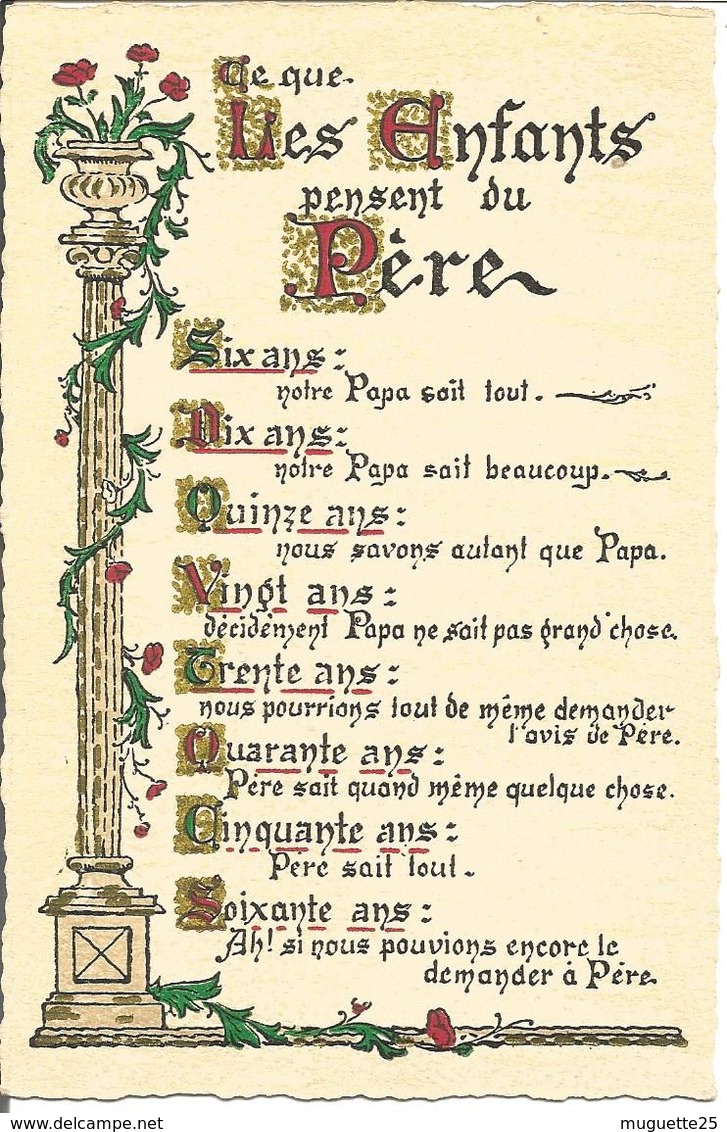 Ce que
Les Enfants
pensent du
Père
Six ans :
notre Papa sait tout.
Dix ans :
notre Papa sait beaucoup.
Quinze ans :
nous savons autant que Papa.
Vingt ans :
décidément Papa ne sait pas grand'chose.
Trente ans :
nous pourrions tout de même demander
l'avis de Père.
Quarante ans :
Père sait quand même quelque chose.
Cinquante ans :
Père sait tout.
Soixante ans :
Ah! si nous pouvions encore le
demander à Père
muguette25